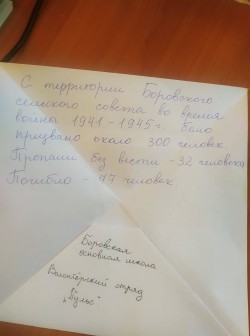 С территории Боровского
сельского совета во время
войны 1941-1945г. было
призвано около 300 человек
Пропали без вести - 32 человека
Погибло - 77 человек
Боровская
основная школа
Волонтёрский отряд
"Пульс"